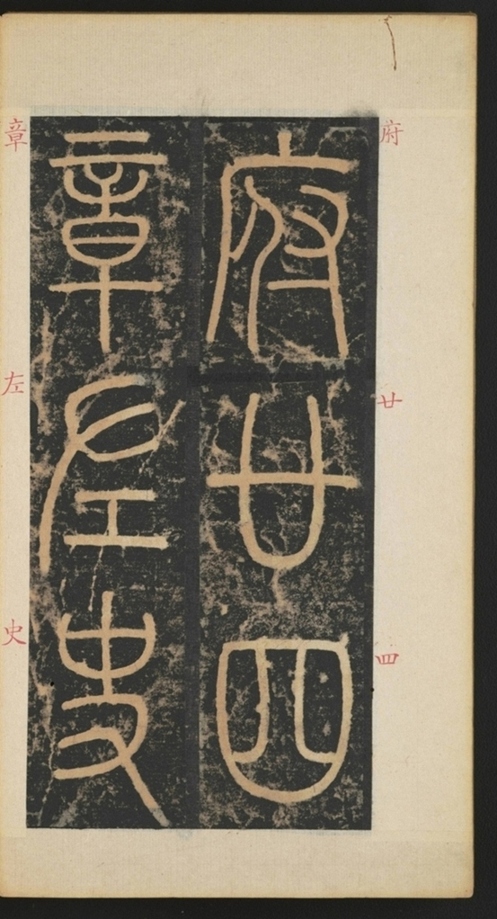 府廿四
章左史
府
廿
四
章
左
史